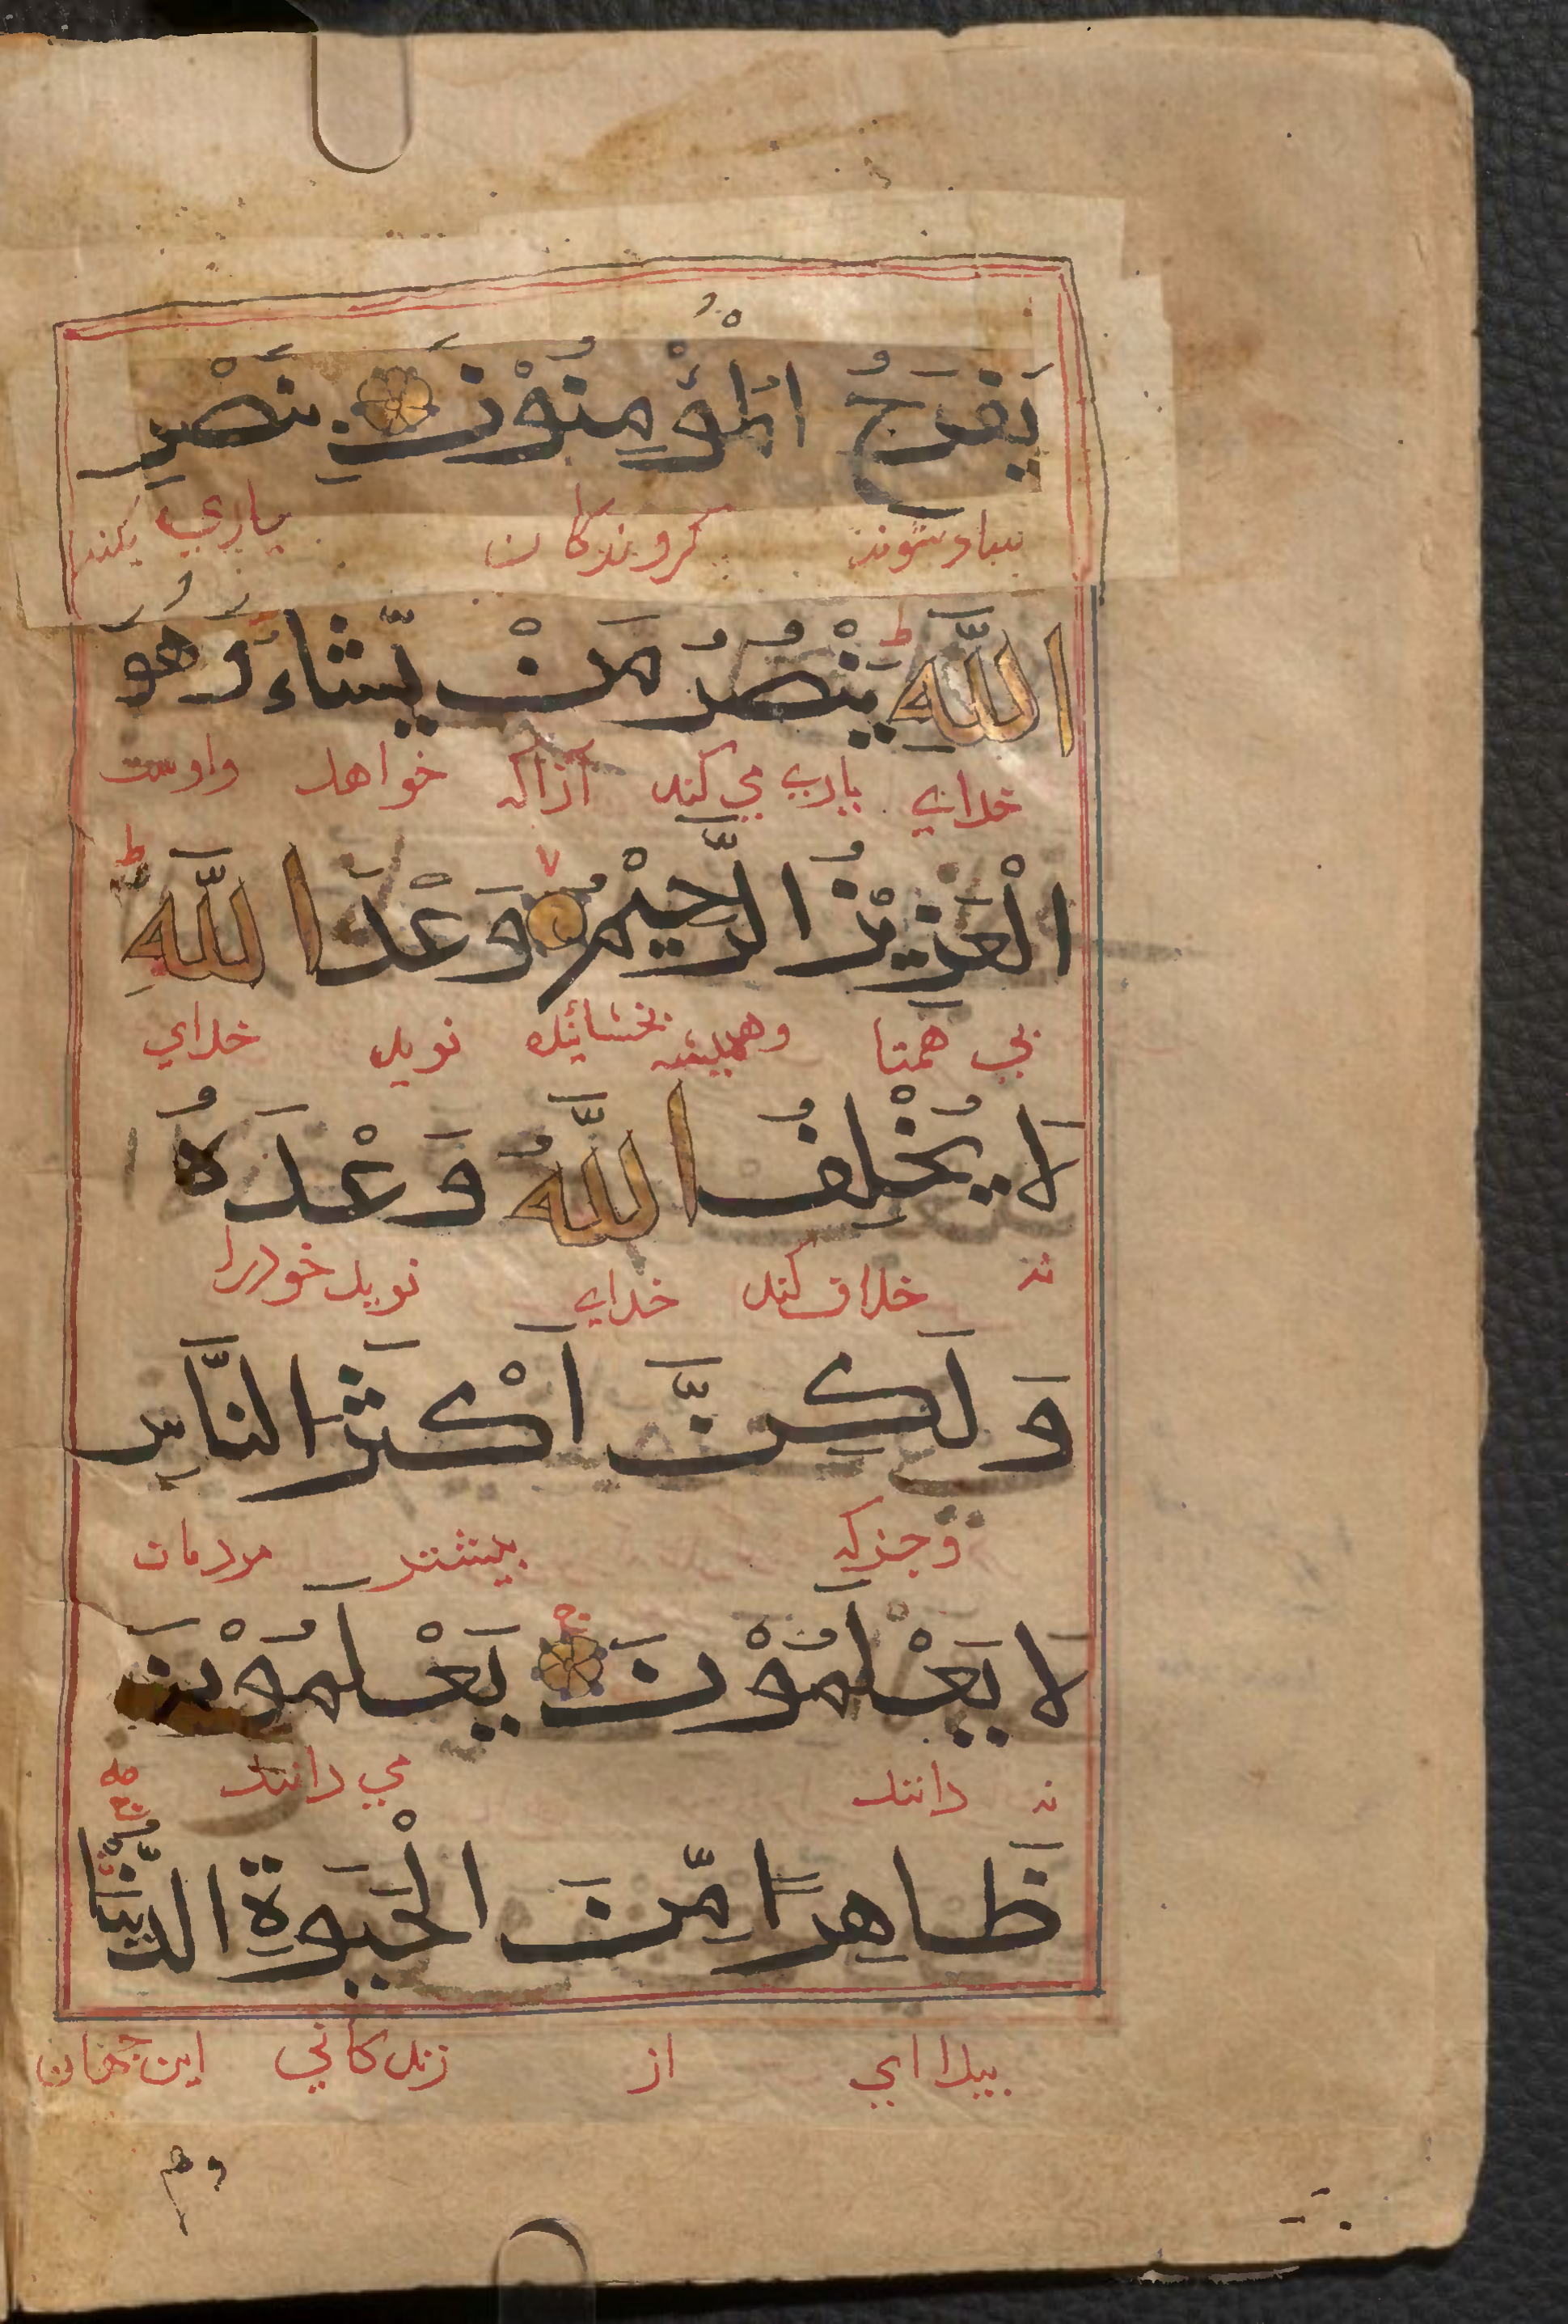 يَفْرَحُ الْمُؤْمِنُوْنَ بِنَصْرِ
شوند كروندكان ياري كند
اللَّهِ ط يَنْصُرُ مَنْ يَّشَاءُ وَهُوَ
خداي ياري مي كند آنراكه خواهد واوست
الْعَزِيْزُ الرَّحِيْمُ وَعْدَ اللَّهِ ط
بي همتا وهميشه بخشاينده نويد خداي
لَا يُخْلِفُ اللَّهُ وَعْدَهُ
نه خلاف كند خداي نويد خودرا
وَلَكِنَّ أَكْثَرَ النَّاسِ
وجزكه بيشتر مردمان
لَا يَعْلَمُوْنَ ج يَعْلَمُوْنَ
نه دانند مي دانند
ظَاهِرًا مِّنَ الْحَيَوةِ الدُّنْيَا
بيدااي از زندكاني اين جهان
وهم